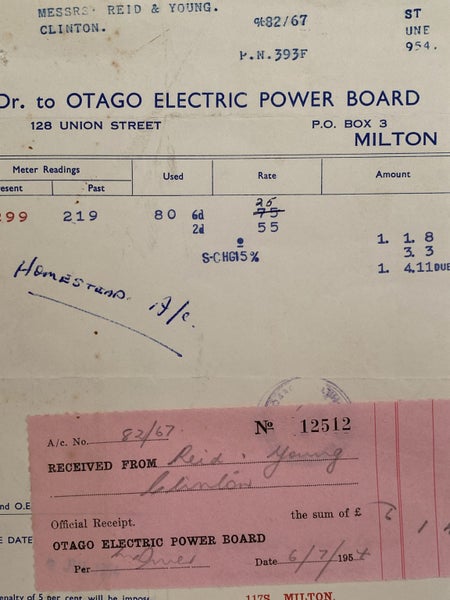 MESSRS. REID & YOUNG.
CLINTON.
82/67
P.N.393F
ST
UNE
954.
Dr. to OTAGO ELECTRIC POWER BOARD
128 UNION STREET
P.O. BOX 3
MILTON
Meter Readings
Used
Rate
Amount
esent
Past
299 219 80 6d 25 75
2d 55
1. 1. 8
S-CHG15% 3. 3
1. 4.11DUE
HOMESTEAD. A/c.
A/c. No. 82/67
No 12512
RECEIVED FROM Reid & Young
Clinton
Official Receipt.
the sum of £
6 1
OTAGO ELECTRIC POWER BOARD
Per
Date 6/7/1954
nd O.E
E DATE
enalty of 5 per cent. will be impos
117S. MILTON.